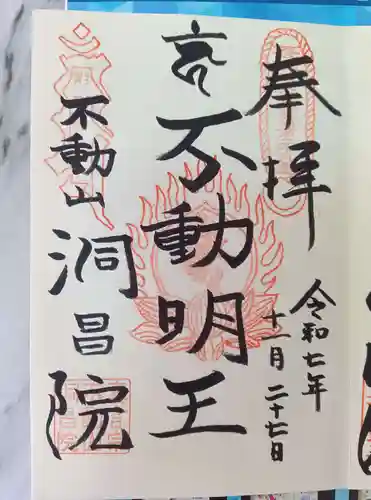 奉拝
令和七年
十一月二十七日
不動明王
不動山
洞昌院